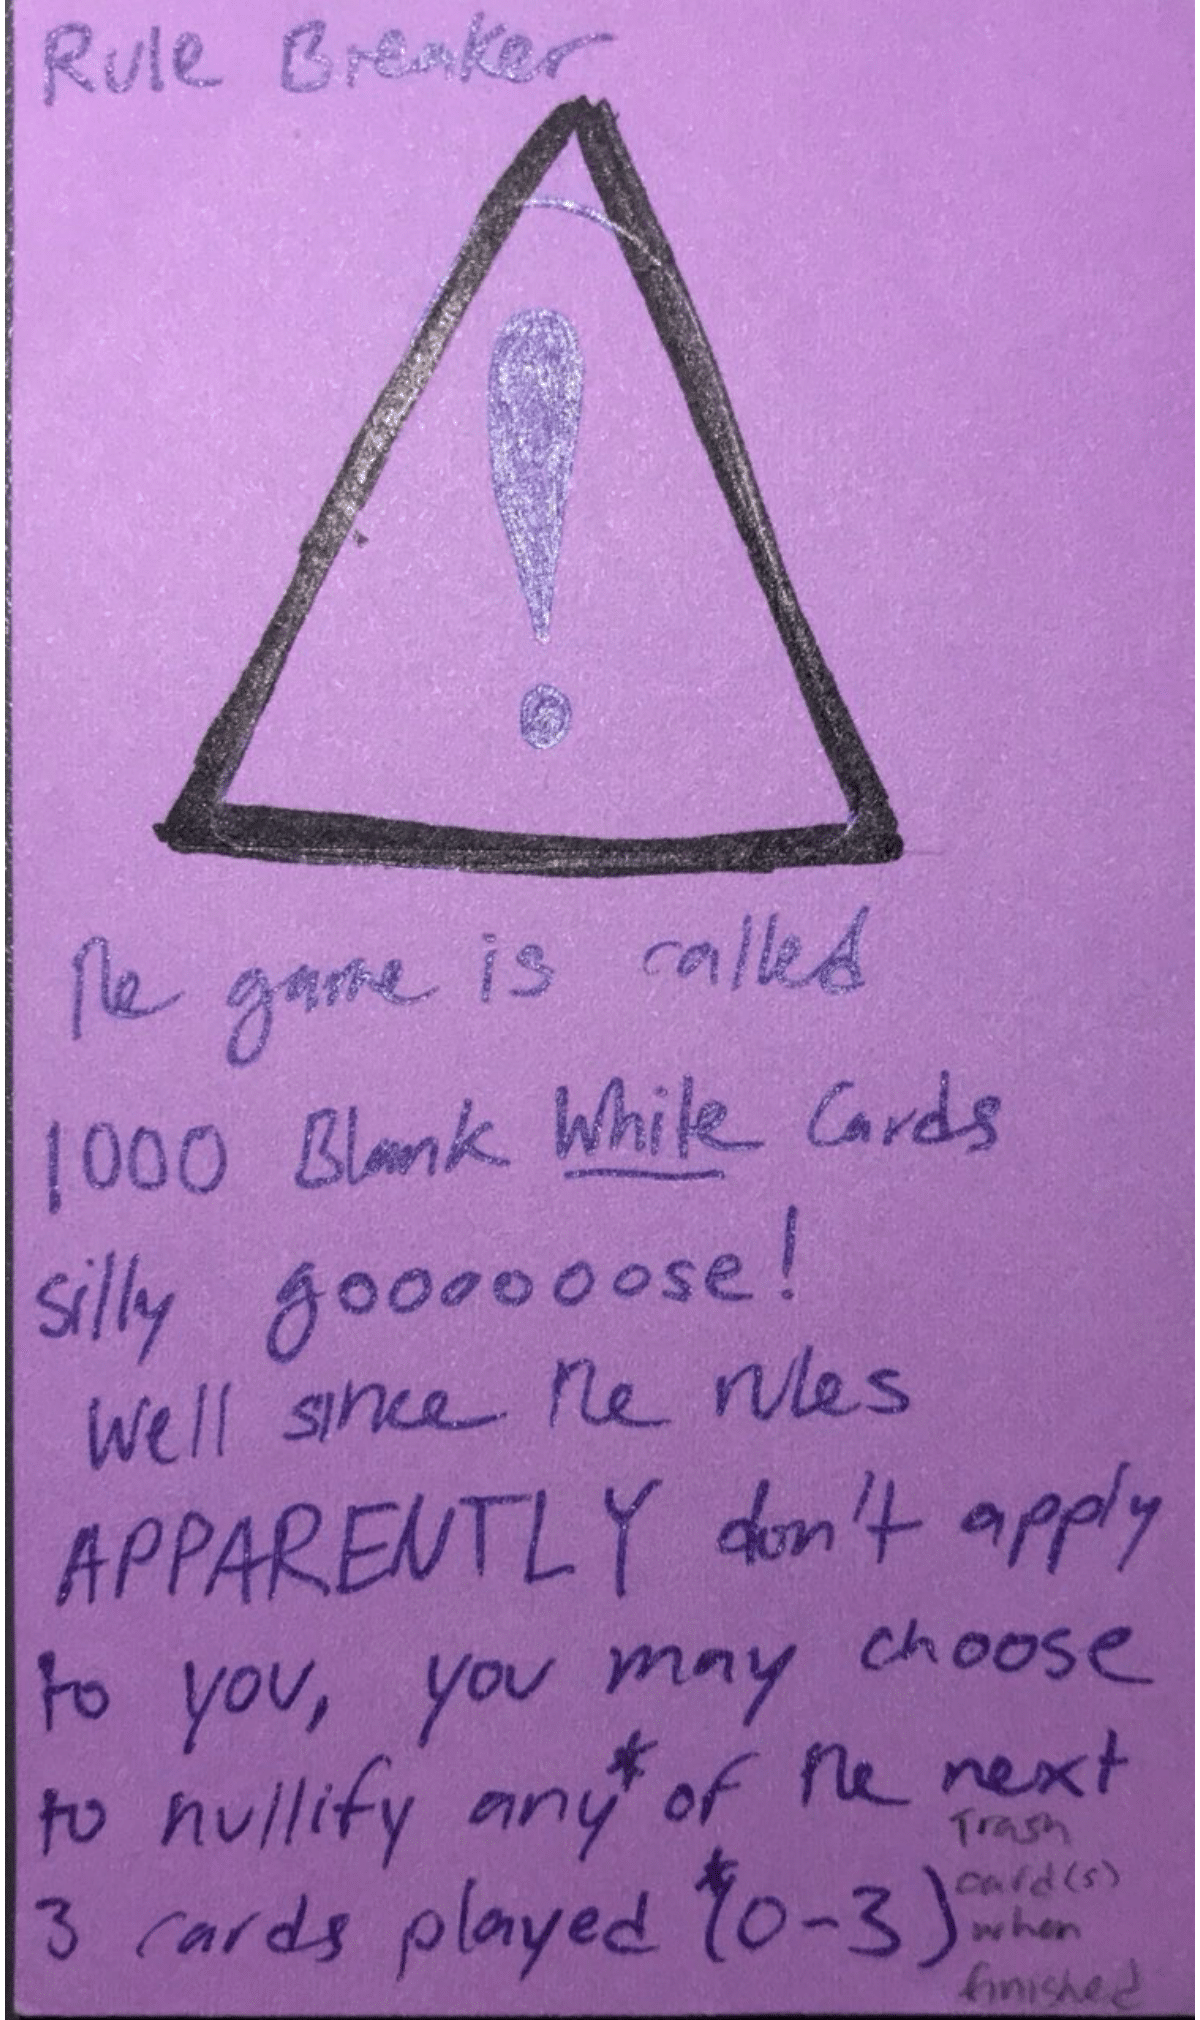 Rule Breaker
!
The game is called
1000 Blank White Cards
silly goooooose!
Well since the rules
APPARENTLY don't apply
to you, you may choose
to nullify any* of the next
3 cards played *(0-3)
Trash
card(s)
when
finished